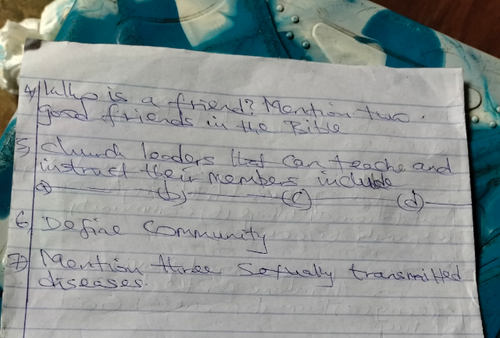 4) Who is a friend? Mention two
good friends in the Bible
5, church leaders that can teache and
instruct their members include
a) (b) (c) (d)
6, Define Community
7) Mention three Sexually transmitted
diseases.